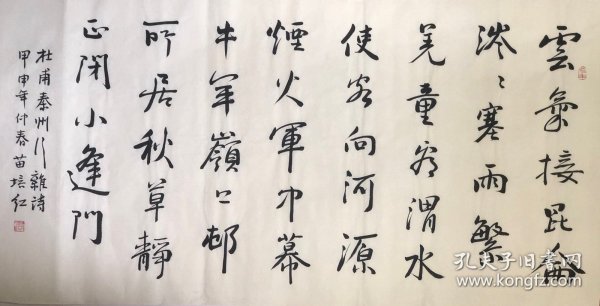 雲氣接昆侖
涔〻塞雨繁
羌童看渭水
使客向河源
煙火軍中幕
牛羊嶺上邨
所居秋草靜
正閉小蓬門
杜甫秦州行雜詩
甲申年仲春苗培红
孔夫子旧书网
www.kongfz.com